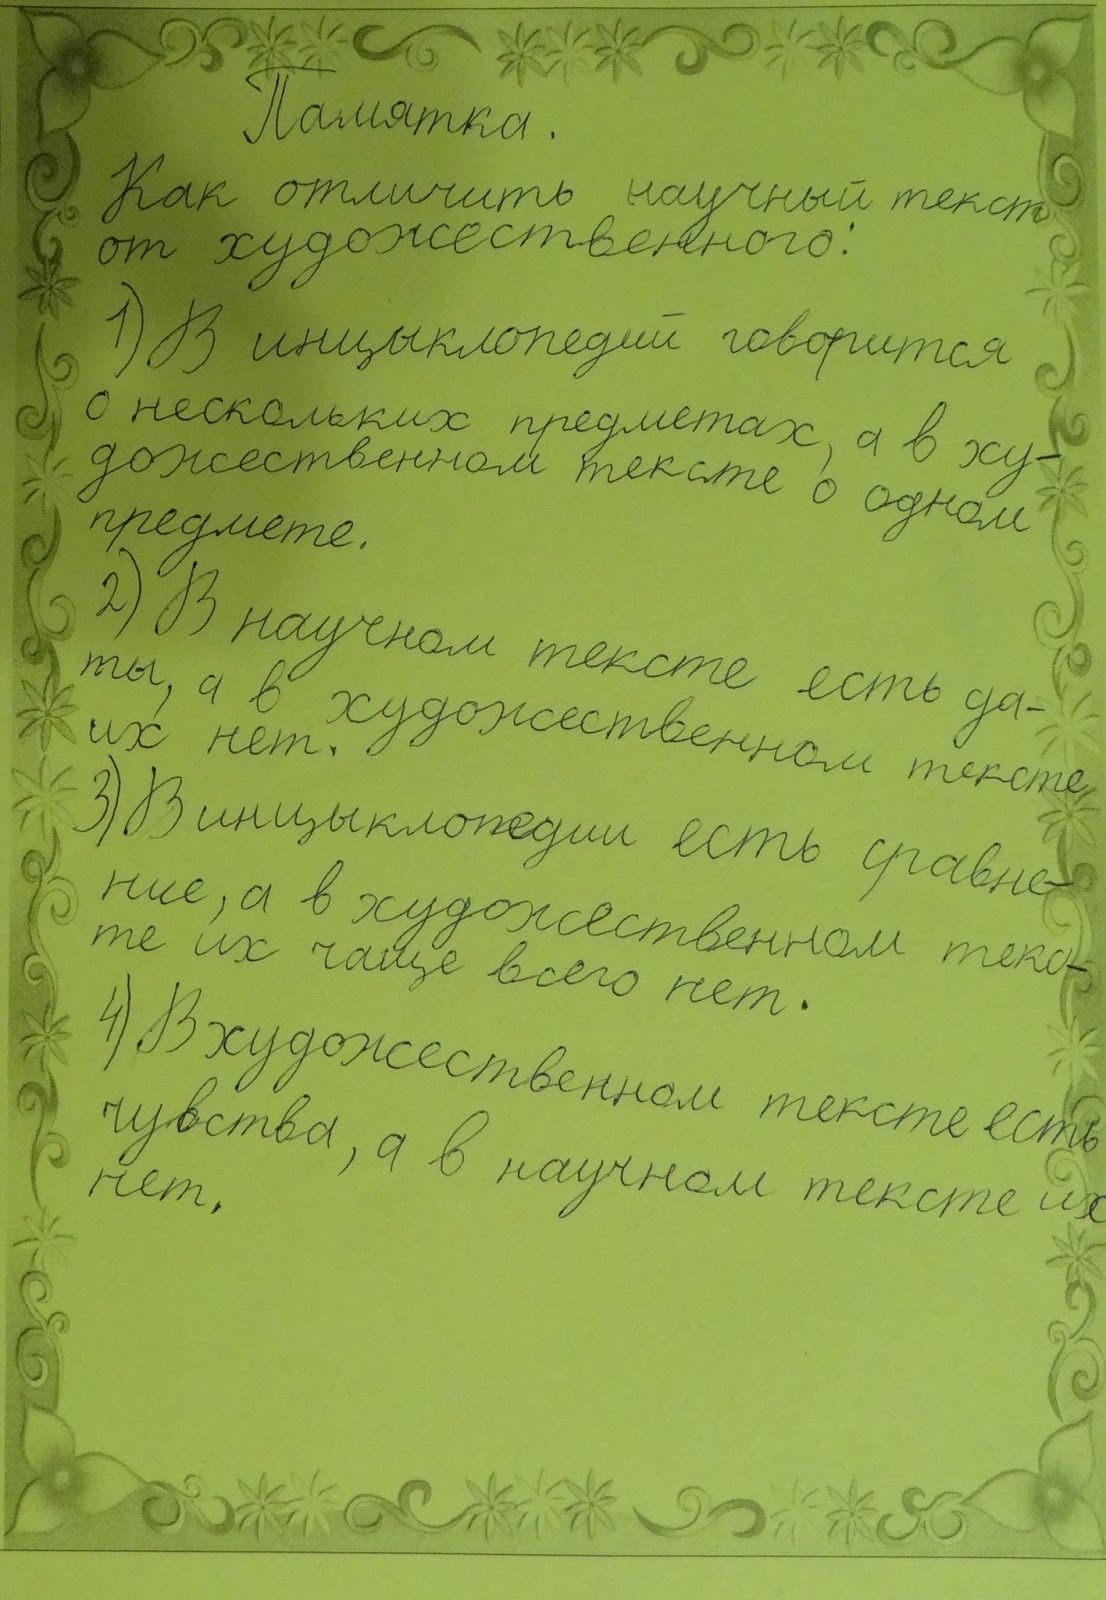 Памятка.
Как отличить научный текст
от художественного:
1) В инцыклопедий говорится
о нескольких предметах, а в ху-
дожественном тексте о одном
предмете.
2) В научном тексте есть да-
ты, а в художественном тексте
их нет.
3) В инцыклопедии есть сравне-
ние, а в художественном текс-
те их чаще всего нет.
4) В художественном тексте есть
чувства, а в научном тексте их
нет.